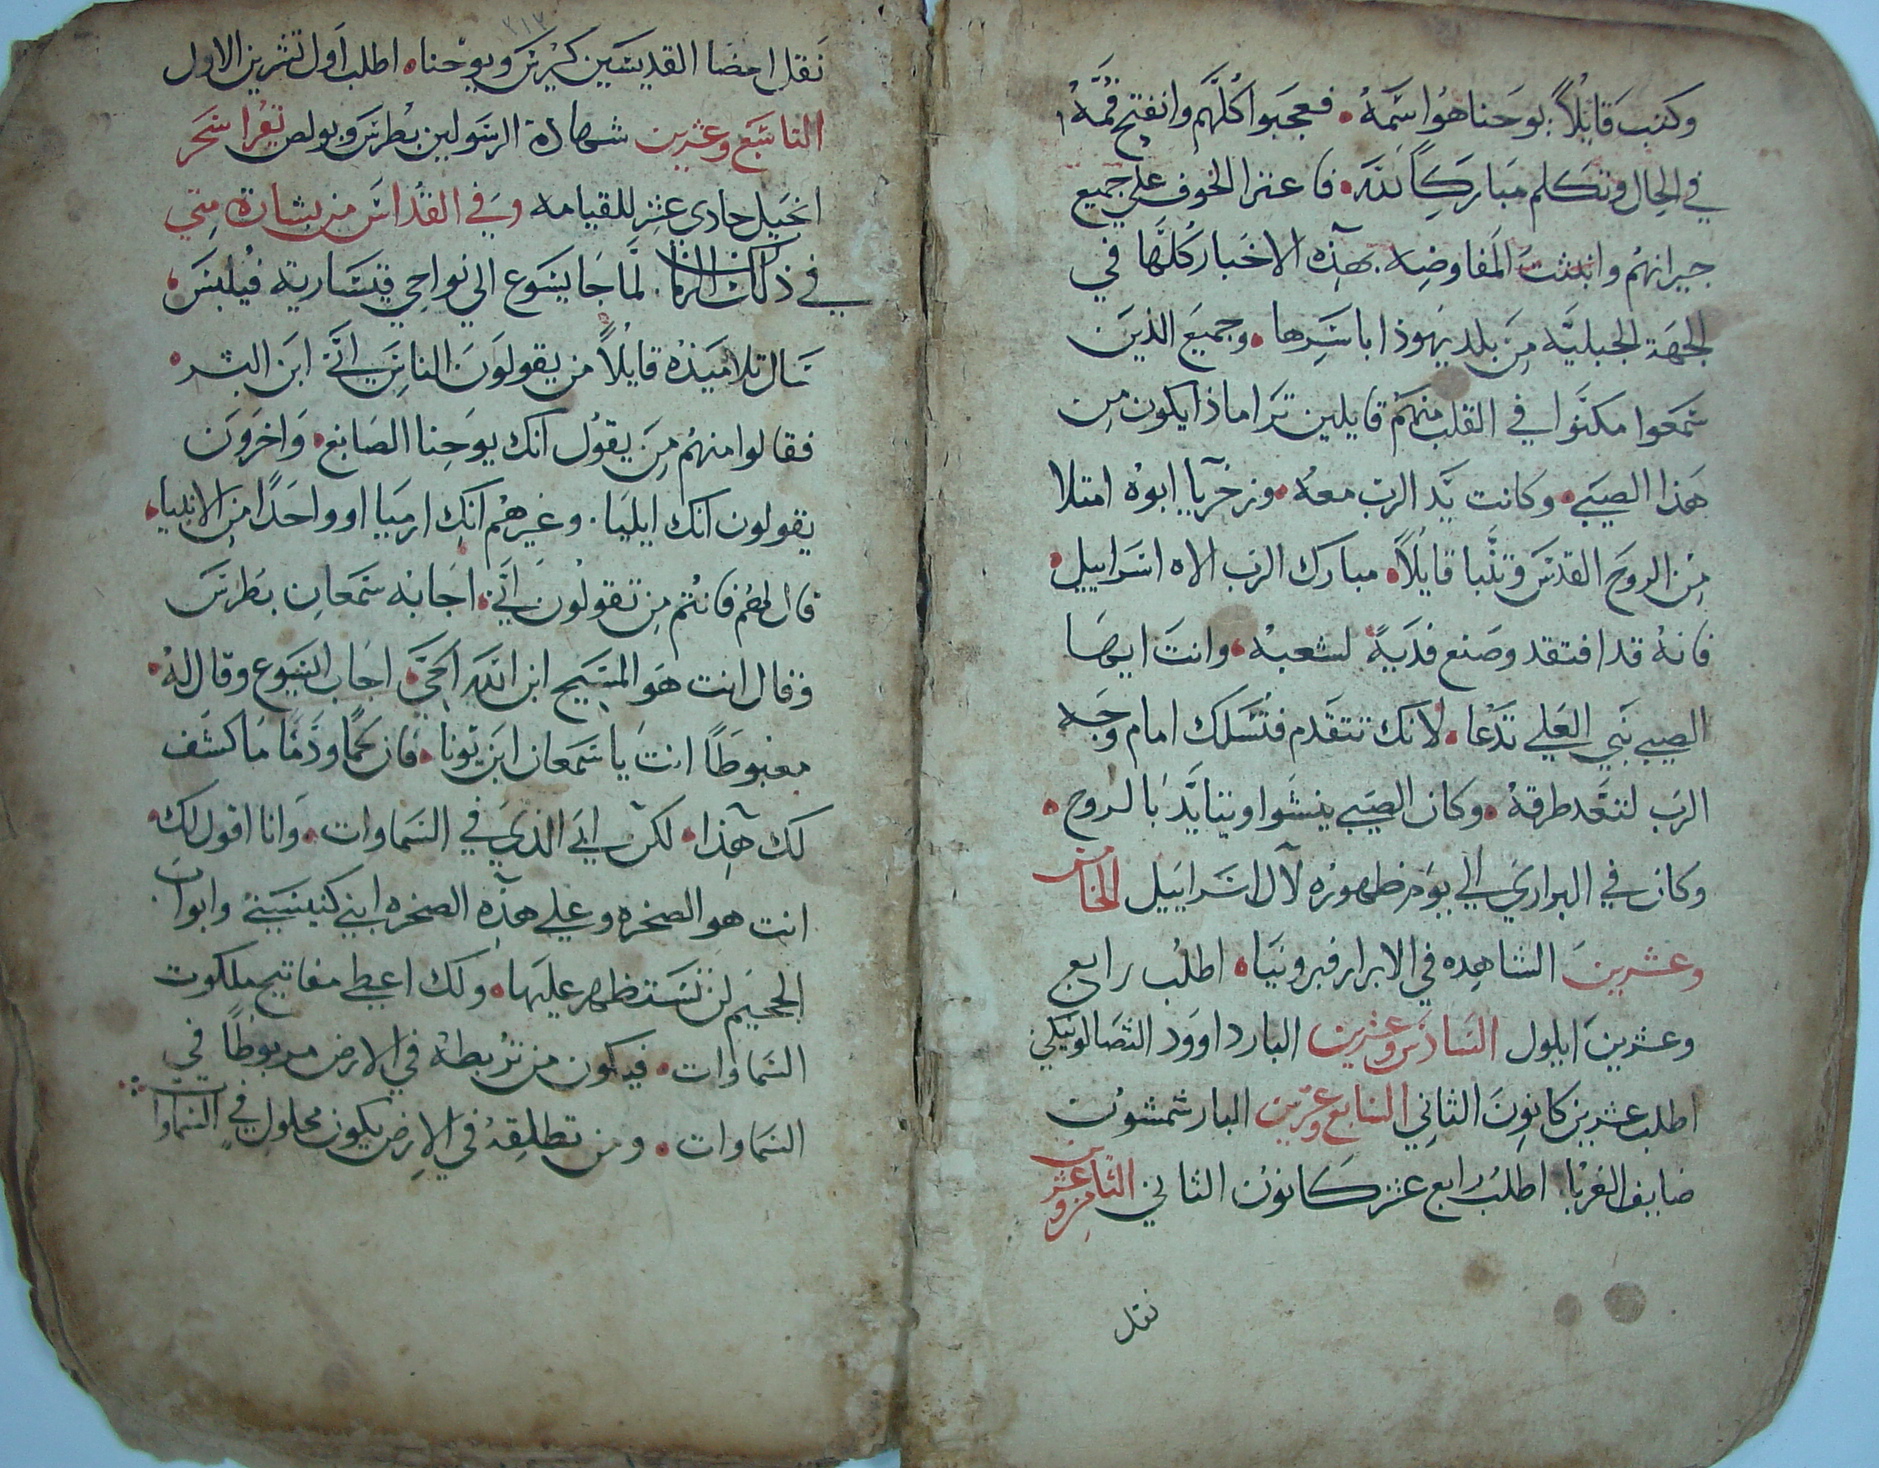 وكتب قايلاً يوحنا هوا اسمه • فعجبوا كلهم وانفتح فمه
في الحال وتكلم مباركاً لله • فاعترا الخوف علي جميع
جيرانهم وانبثت المفاوضه بهذه الاخبار كلها في
الجهة الجبليه من بلد يهوذا باسرها • وجميع الذين
سمعوا مكنوا في القلب منهم قايلين ترا ماذا يكون من
هذا الصبي • وكانت يد الرب معه • وزخريا ابوه امتلا
من الروح القدس وتنبا قايلاً • مبارك الرب الاه اسراييل •
فانه قد افتقد وصنع فدية لشعبه • وانت ايها
الصبي نبي العلي تدعا • لانك تتقدم فتسلك امام وجه
الرب لتعد طرقه • وكان الصبي ينشوا ويتايد بالروح •
وكان في البراري الي يوم ظهوره لآل اسراييل الخامس
وعشرين الشاهده في الابرار فبرونيا • اطلب رابع
وعشرين ايلول السادس وعشرين البار داوود التصالونيكي
اطلب عشرين كانون الثاني السابع وعشرين البار شمشون
ضايف الغربا اطلب رابع عشر كانون الثاني الثامن وعشرين
نقل
٣١٣
نقل اعضا القديسين كيرس ويوحنا • اطلب اول تشرين الاول
التاسع وعشرين شهادة الرسولين بطرس وبولص تقرا سحر
انجيل حادي عشر للقيامه وفي القداس من بشارة متي
في ذلك الزمان لما جا يسوع الي نواحي قيسارية فيلبس •
سال تلاميذه قايلاً من يقولون الناس اني ابن البشر •
فقالوا منهم من يقول انك يوحنا الصابغ • واخرون
يقولون انك ايليا • وغيرهم انك ارميا او واحدا من الانبيا •
قال لهم فانتم من تقولون اني • اجابه سمعان بطرس
وقال انت هو المسيح ابن الله الحي • اجاب اليسوع وقال له •
مغبوطا انت يا سمعان ابن يونا • فان لحما ودما ما كشف
لك هذا • لكن ابي الذي في السماوات • وانا اقول لك •
انت هو الصخره وعلي هذه الصخره ابني كنيستي وابواب
الجحيم لن تستظهر عليها • ولك اعطي مفاتيح ملكوت
السماوات • فيكون من تربطه في الارض مربوطا في
السماوات • ومن تطلقه في الارض يكون محلول في السماوات